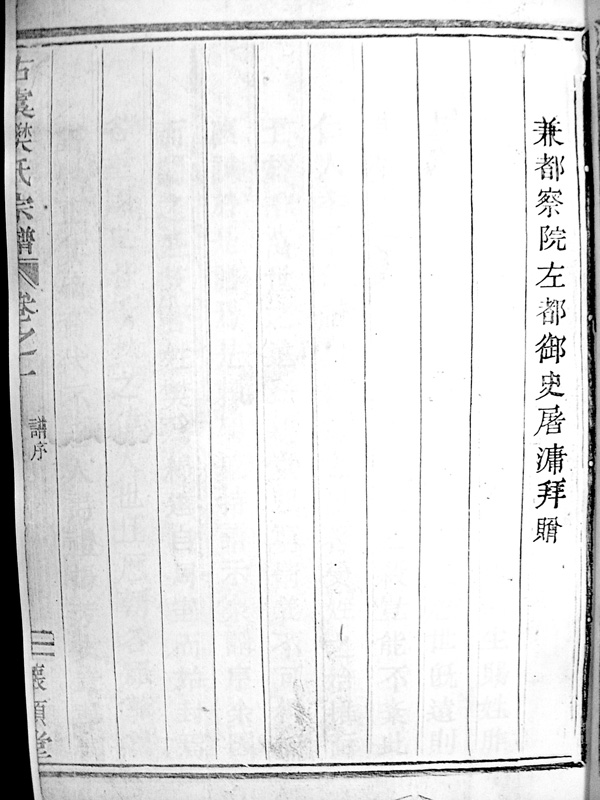 兼都察院左都御史屠滽拜贈
古虞樊氏宗譜 卷之一 譜序 二 懷順堂